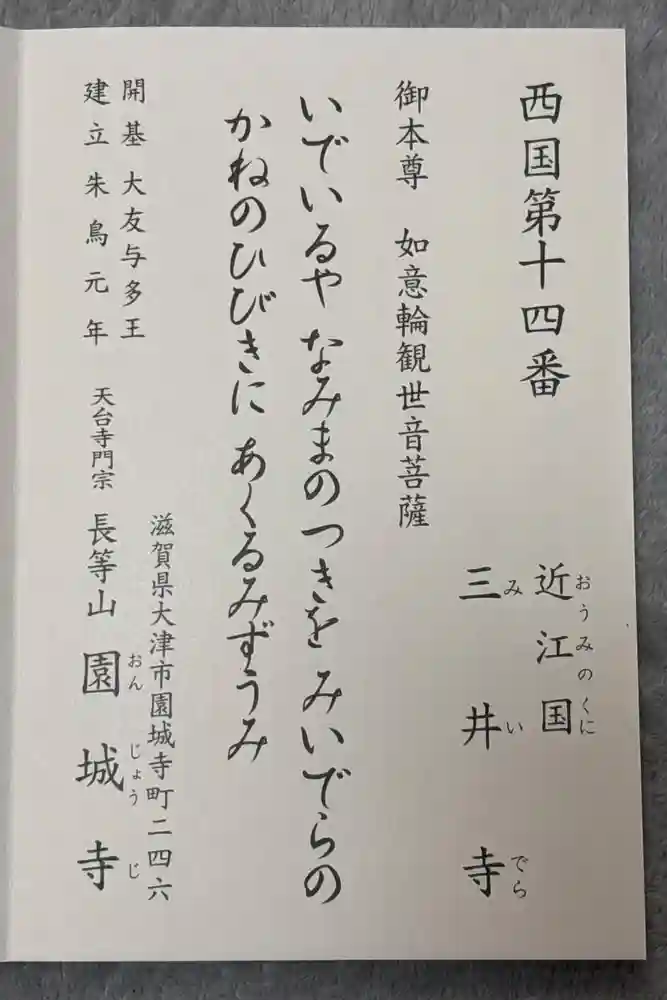 西国第十四番
近江国
おうみのくに
三井寺
みいでら
御本尊 如意輪観世音菩薩
いでいるや なみまのつきを みいでらの
かねのひびきに あくるみずうみ
滋賀県大津市園城寺町二四六
開基 大友与多王
建立 朱鳥元年
天台寺門宗 長等山 園城寺
おんじょうじ